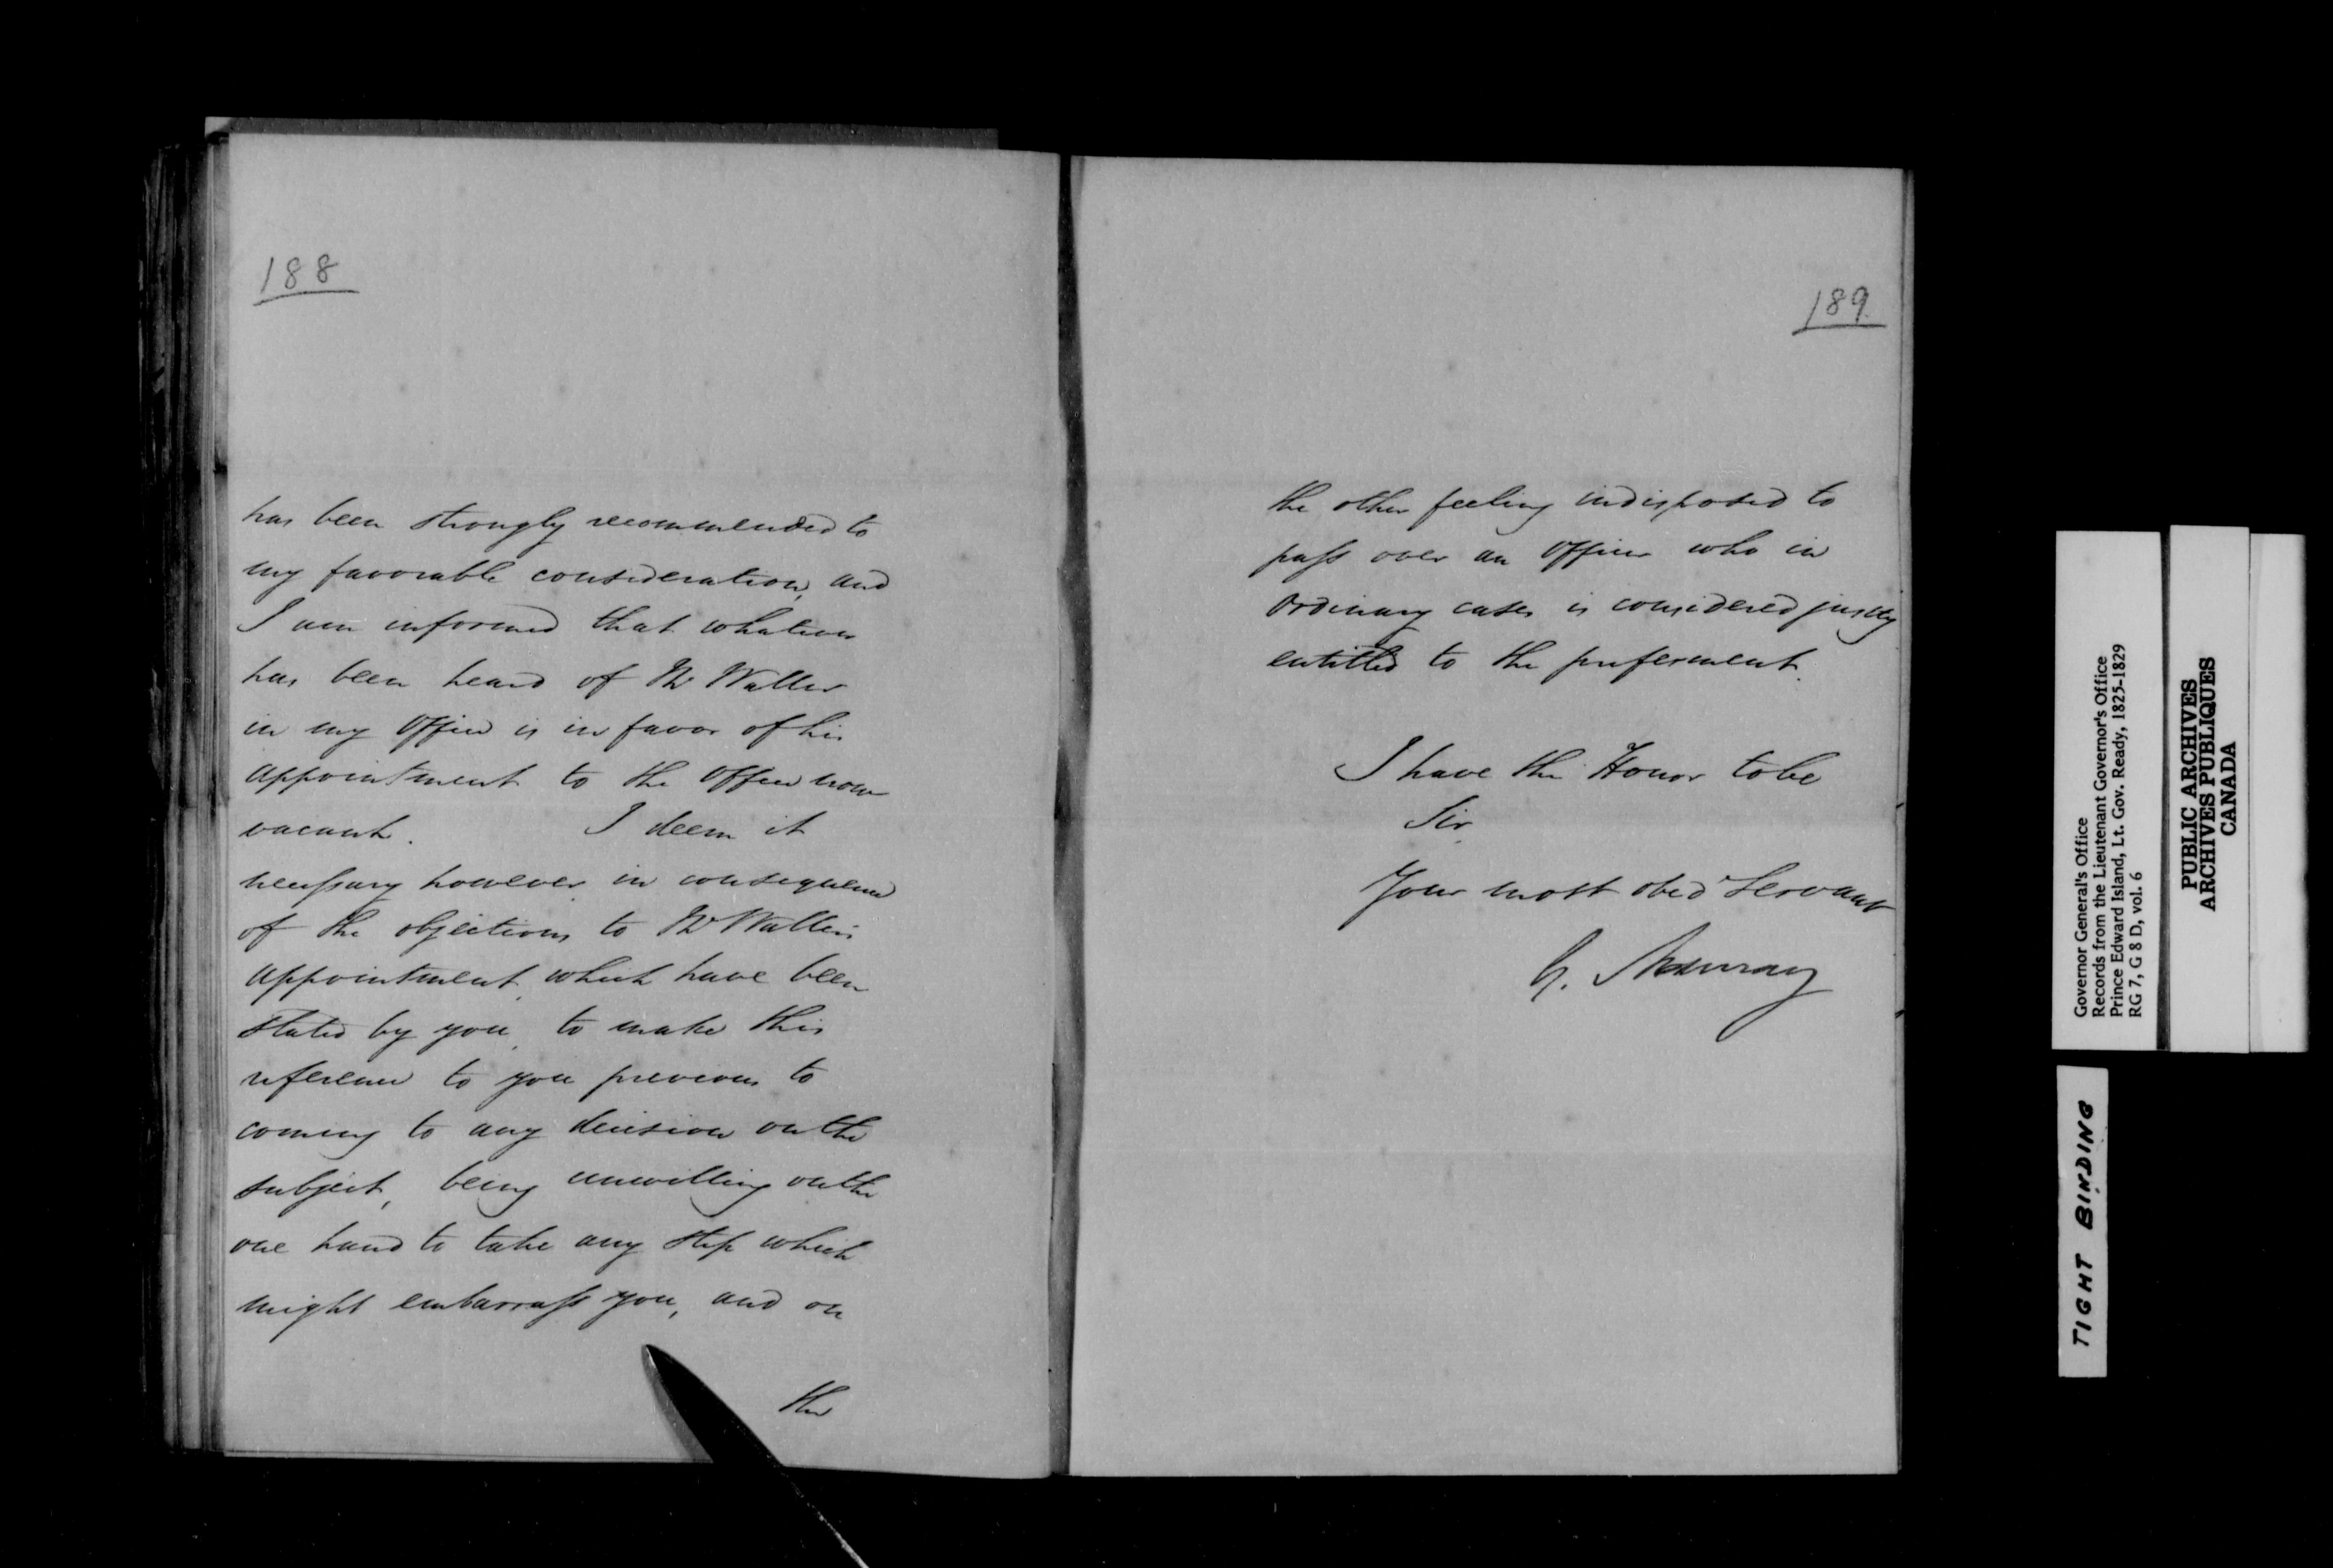 188
has been strongly recommended to
my favorable consideration, and
I am informed that whatever
has been heard of Mr Waller
in my Office is in favor of his
appointment to the Office now
vacant. I deem it
necessary however in consequence
of the objections to Mr Waller's
appointment, which have been
stated by you, to make this
reference to you previous to
coming to any decision on the
subject, being unwilling on the
one hand to take any step which
might embarrass you, and on
the
189
the other feeling indisposed to
pass over an Officer who in
ordinary cases is considered justly
entitled to the preferment.
I have the Honor to be
Sir,
Your most obed Servant
G. Murray
Governor General's Office
Records from the Lieutenant Governor's Office
Prince Edward Island, Lt. Gov. Ready, 1825-1829
RG 7, G 8 D, vol. 6
PUBLIC ARCHIVES
ARCHIVES PUBLIQUES
CANADA
TIGHT BINDING